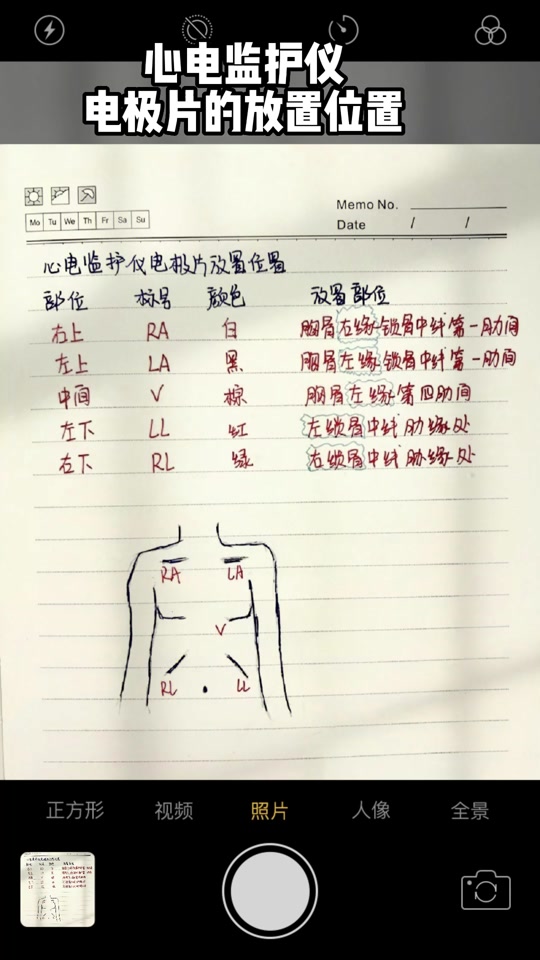 心电监护仪
电极片的放置位置
Memo No.
Mo Tu We Th Fr Sa Su
Date / /
心电监护仪电极片放置位置
部位 标号 颜色 放置部位
右上 RA 白 胸骨右缘锁骨中线第一肋间
左上 LA 黑 胸骨左缘锁骨中线第一肋间
中间 V 棕 胸骨左缘第四肋间
左下 LL 红 左锁骨中线肋缘处
右下 RL 绿 右锁骨中线肋缘处
RA LA
V
RL LL
正方形 视频 照片 人像 全景